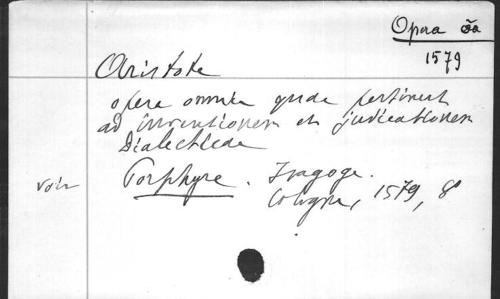 Opera oa
1579
Aristote
opera omnia quae pertinent
ad inventionem et judicationem
Dialecticae
voir Porphyre. Isagoge.
Cologne, 1579, 8°